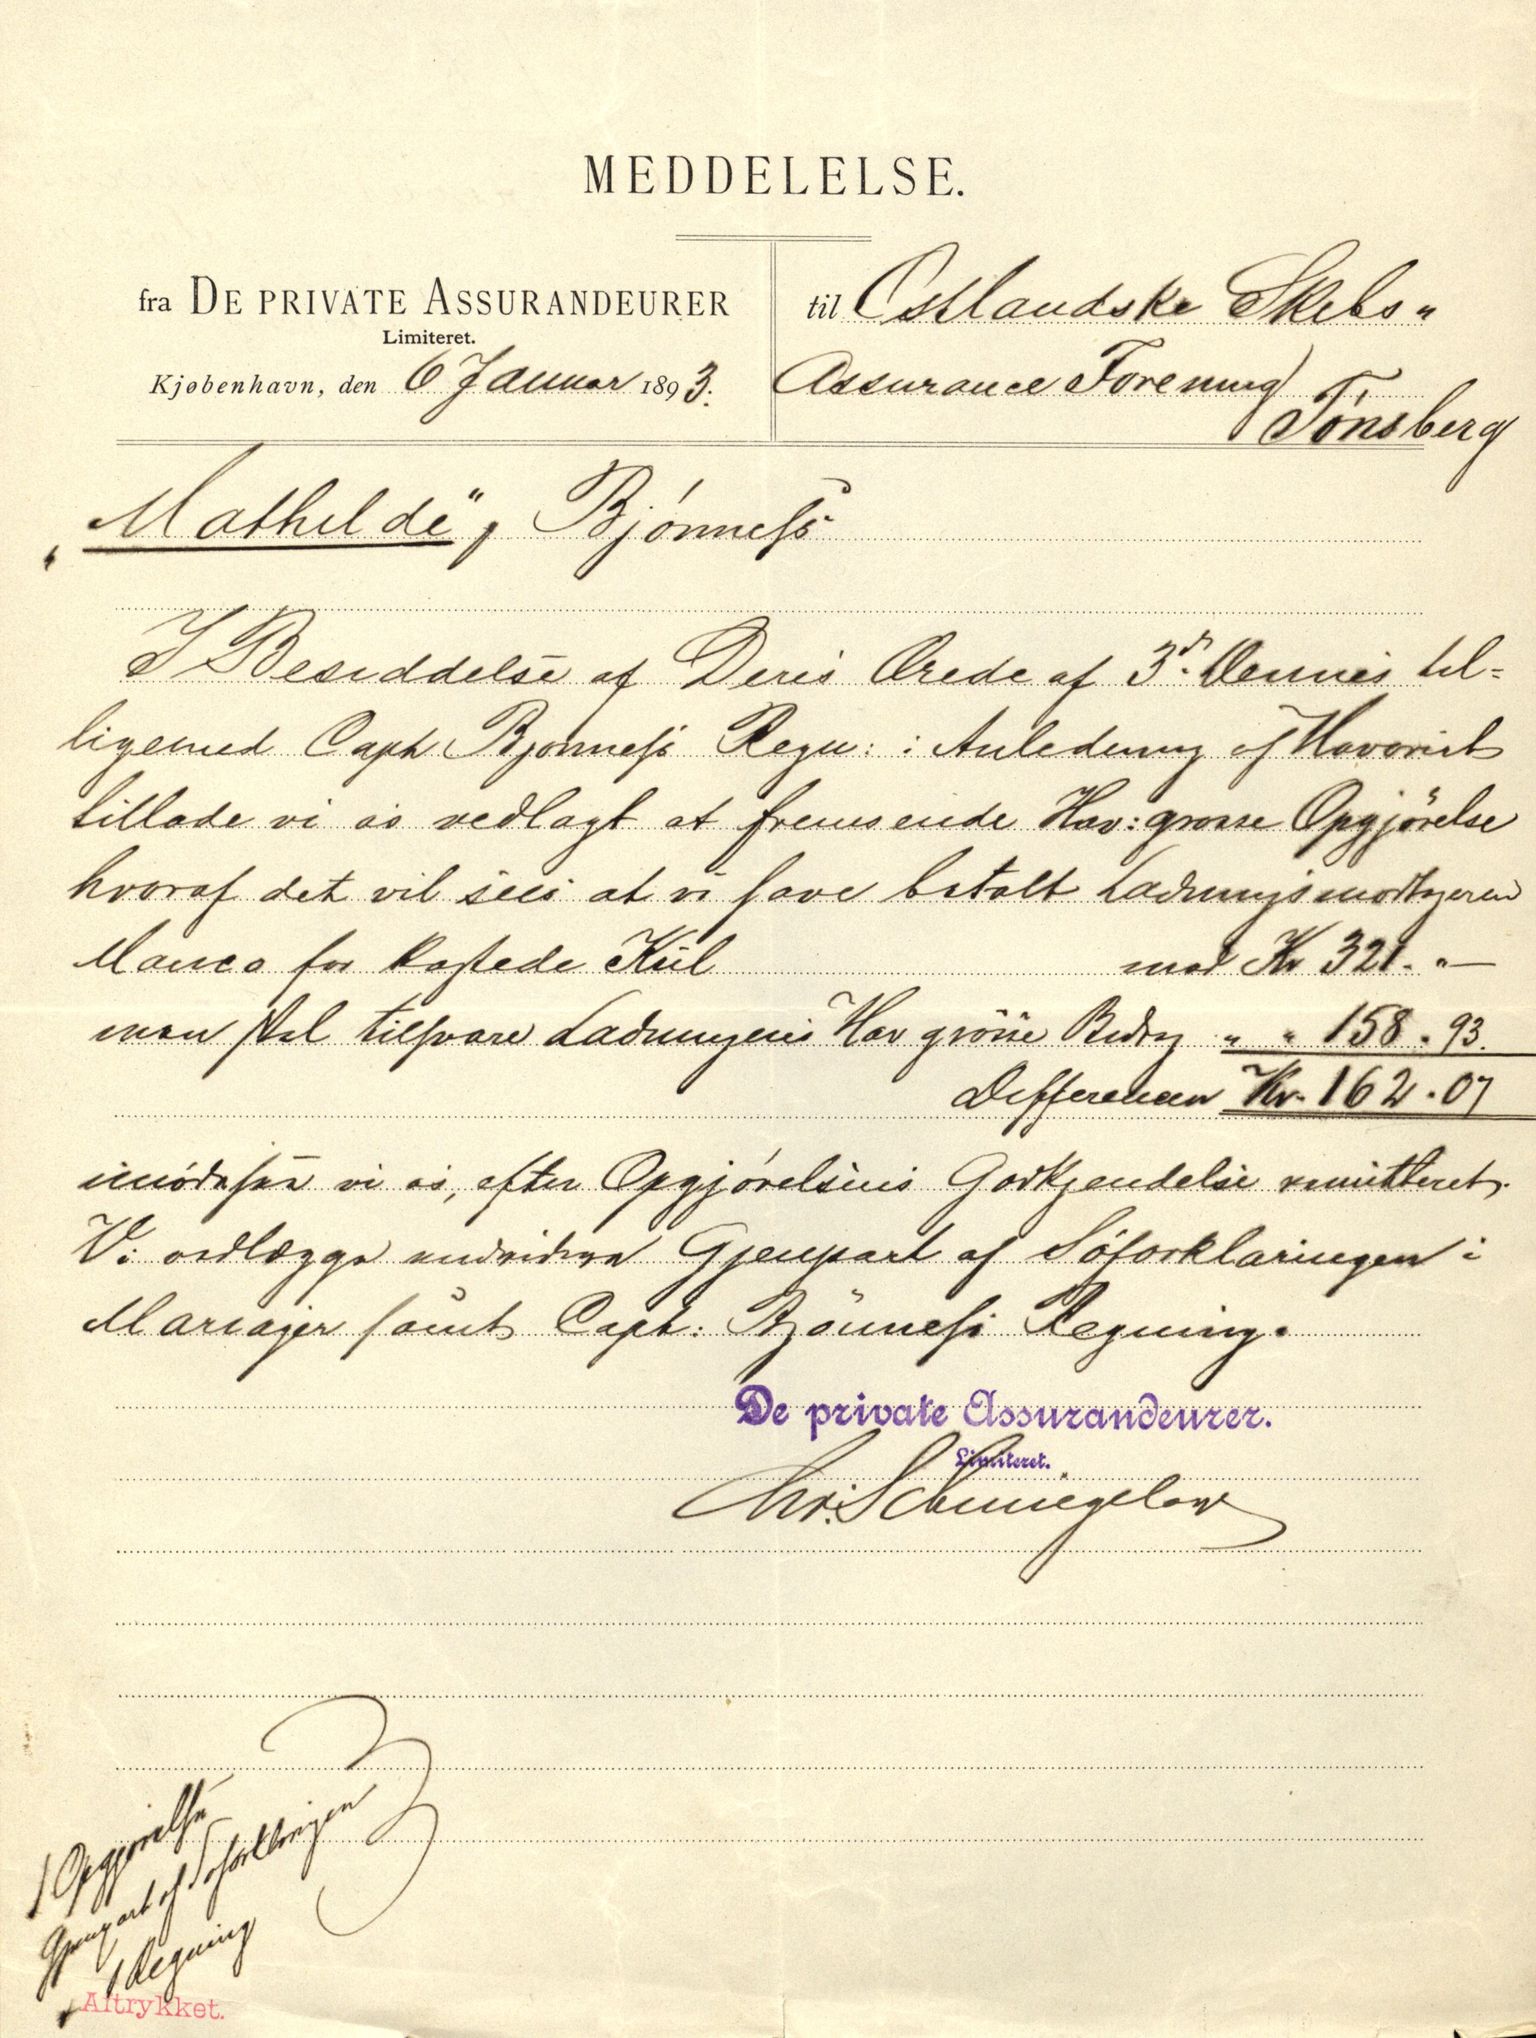 MEDDELELSE.
fra DE PRIVATE ASSURANDEURER
Limiteret.
Kjøbenhavn, den 6 Januar 1893.
til Østlandske Skibs "
Assurance Forening
Tönsberg
„Mathilde", Bjónness
I Besiddelse af Deres Ærede af 3die Dennes til=
ligemed Capt Bjonness Regn: i Anledning af Havariet
tillade vi os vedlagt at fremsende Hav: grosse Opgjörelse
hvoraf det vil sees at vi have betalt Ladningsmodtageren
Manco for kastede Kul med Kr 321. "—
man skal tilsvare Ladningens Hav grosse Bidrag " " 158.93.
Differencen Kr. 162.07
imödese vi os, efter Opgjórelsens Godkjendelse remitteret.
Vi vedlægge endvidere Gjenpart af Söforklaringen i
Mariager samt Capt: Bjönness Regning.
De private Assurandeurer.
Limiteret.
Chr. Schmiegelow
1 Opgjörelse
Gjenpart af Söforklaringen
1 Regning
Aftrykket.